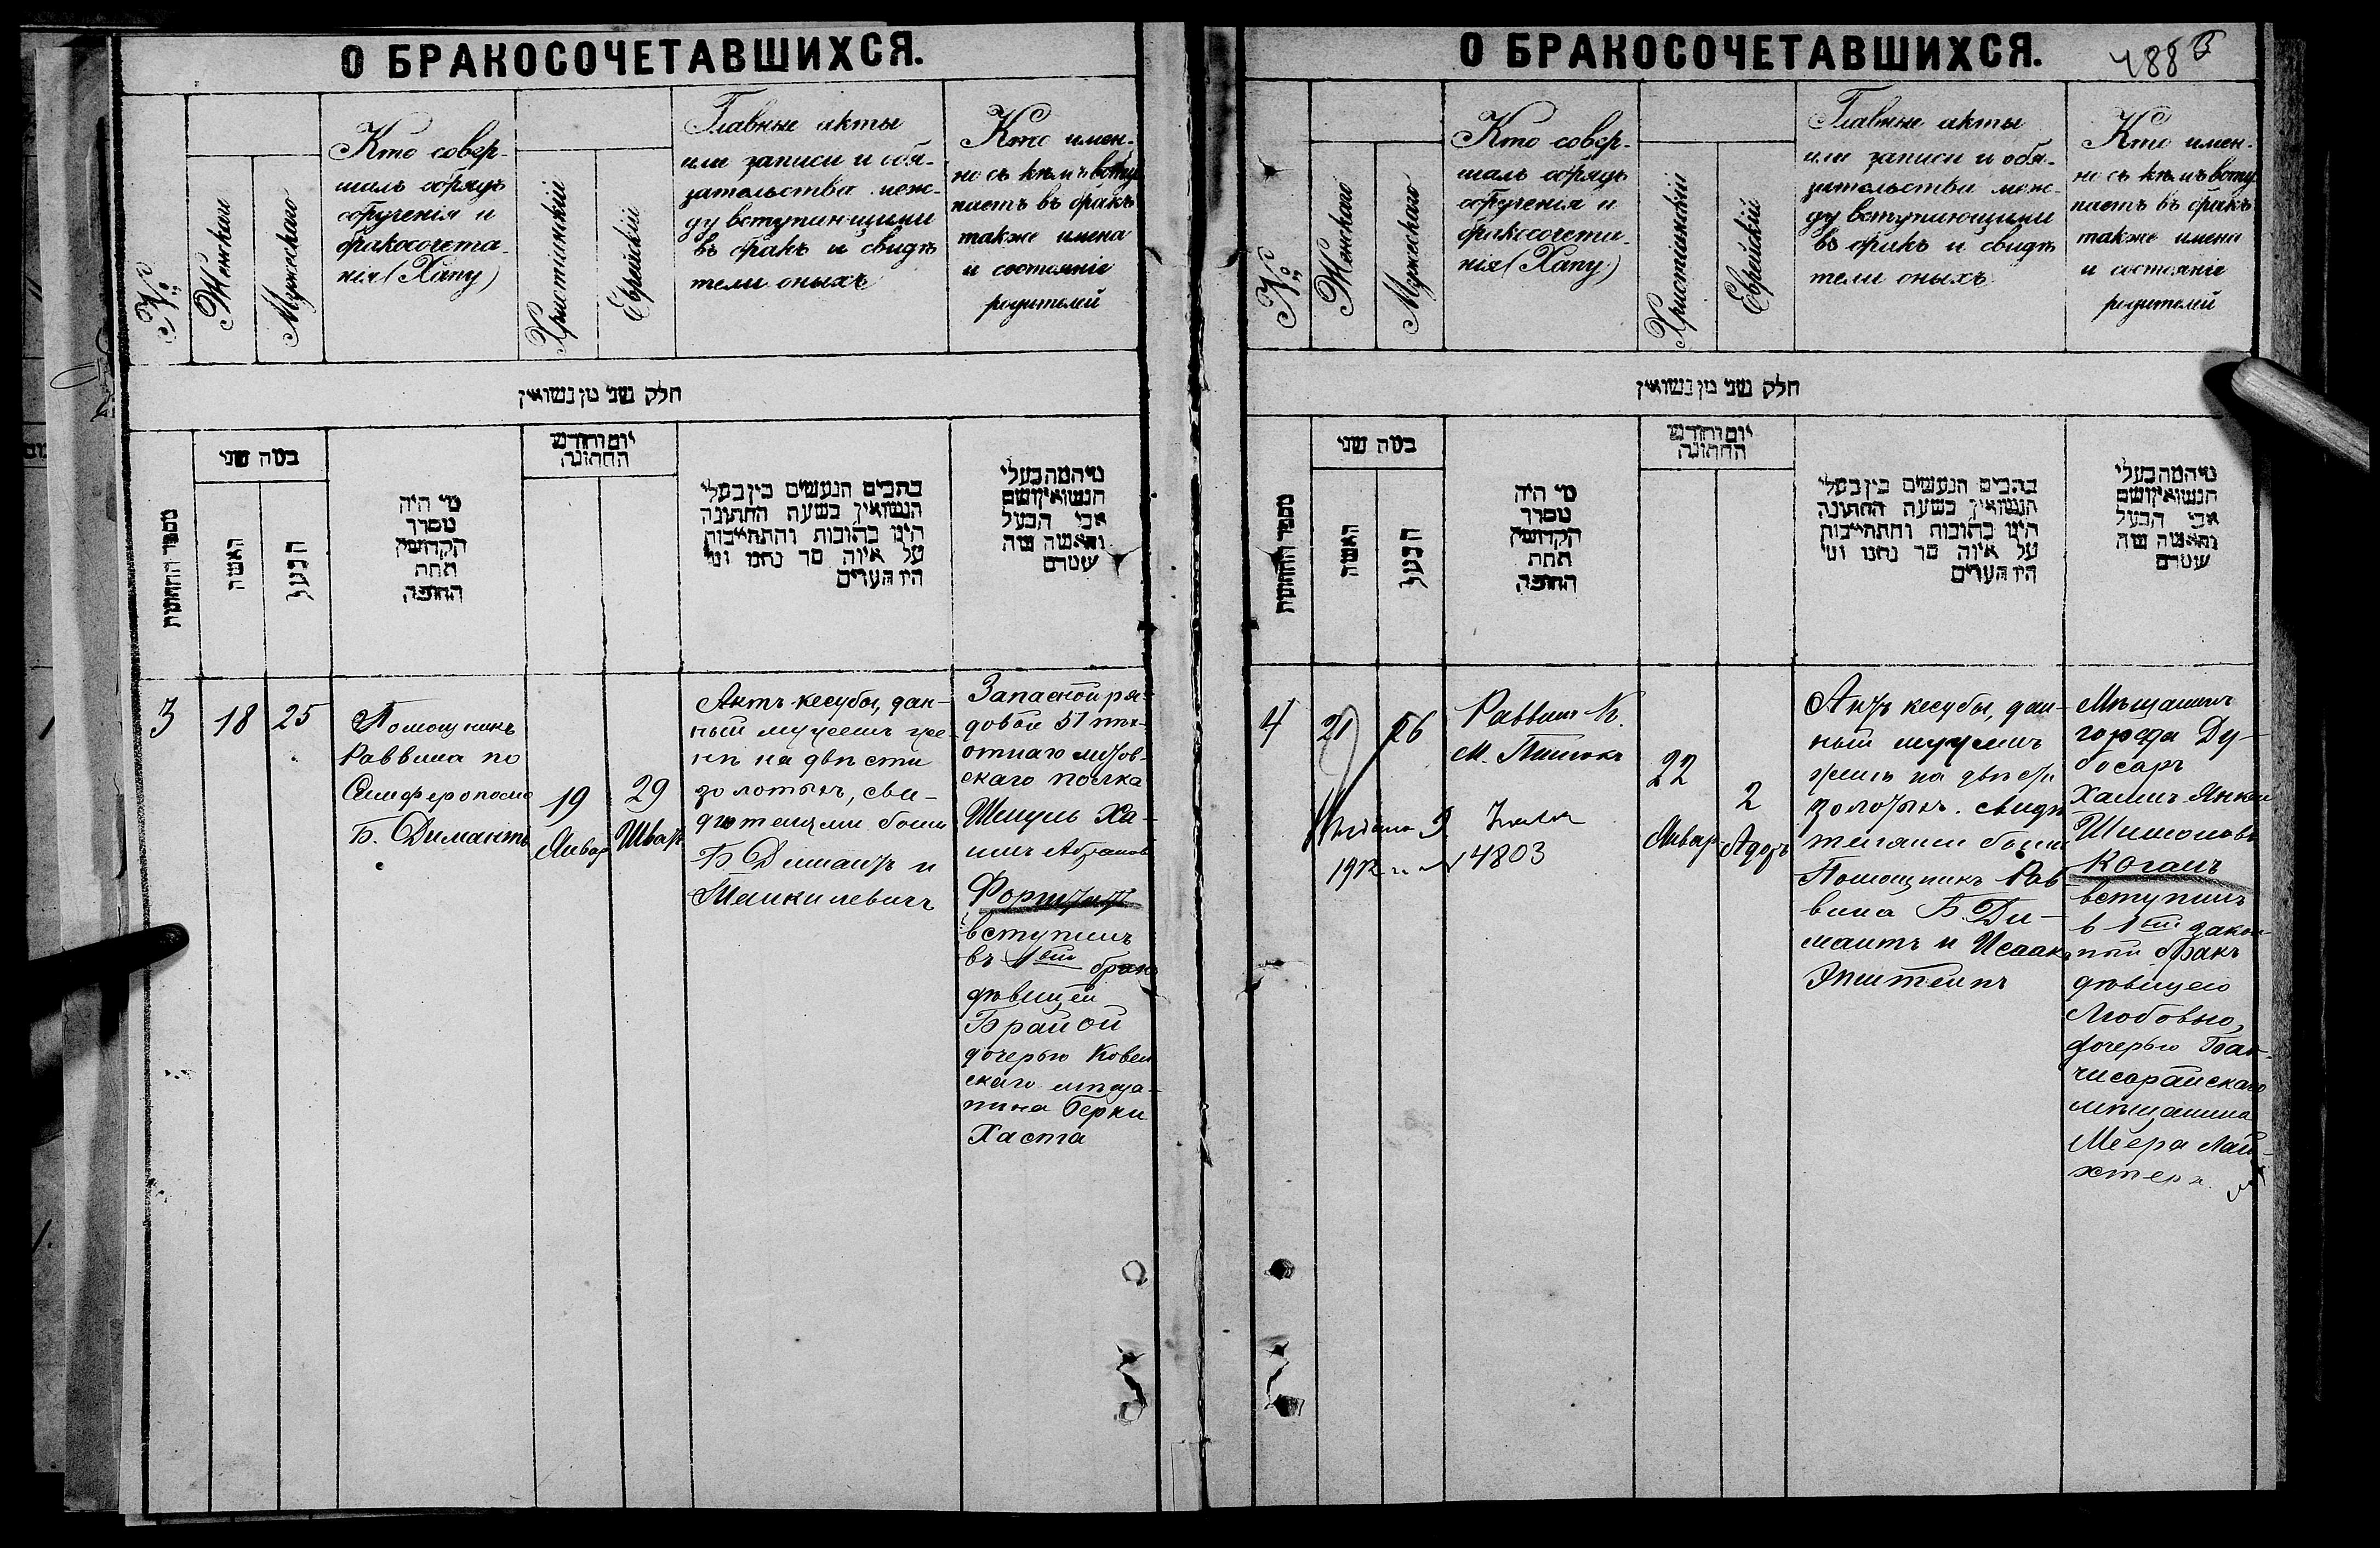 О БРАКОСОЧЕТАВШИХСЯ.
№
Женскаго
Мужескаго
Кто совер-
шалъ обрядъ
обрученія и
бракосочета-
нія (Хапу)
Христіянскій
Еврейскій
Главные акты
или записи и обя-
зательства меж-
ду вступающими
въ бракъ и свидѣ
тели оныхъ
Кто имен-
но съ кѣмъ всту
паетъ въ бракъ
также имена
и состояніе
родителей
חלק שני מן נשואין
מספר החתונות
כמה שני
האשה
הבעל
מי היה
מסדר
הקדושין
תחת
החופה
יום וחודש
החתונה
כתבים הנעשים בין בעלי
הנשואין בשעת החתונה
היינו כתובות והתחייבות
על איזה סך נתנו ומי
היו העדים
מי המה בעלי
הנשואין ושם
אבי הבעל
והאשה ומה
שטרם
3
18
25
Помощникъ
Раввина по
Симферополю
Б. Димантъ
19
Январ
29
Шват
Актъ кесубы, дан-
ный мужемъ же-
нѣ на двѣсти
золотыхъ, сви-
дѣтелями были
Б Димантъ и
Машкилевичъ
Запасной ря-
довой 51 пѣх-
отнаго литов-
скаго полка
Шмуль Ха-
имъ Абрамов
вступилъ
въ 1ый бракъ
дѣвицей
Брайой
дочерью Ковел
скаго мѣща-
нина Берки
Хаста
О БРАКОСОЧЕТАВШИХСЯ.
488
№
Женскаго
Мужескаго
Кто совер-
шалъ обрядъ
обрученія и
бракосочета-
нія (Хапу)
Христіянскій
Еврейскій
Главные акты
или записи и обя-
зательства меж-
ду вступающими
въ бракъ и свидѣ
тели оныхъ
Кто имен-
но съ кѣмъ всту
паетъ въ бракъ
также имена
и состояніе
родителей
חלק שני מן נשואין
מספר החתונות
כמה שני
האשה
הבעל
מי היה
מסדר
הקדושין
תחת
החופה
יום וחודש
החתונה
כתבים הנעשים בין בעלי
הנשואין בשעת החתונה
היינו כתובות והתחייבות
על איזה סך נתנו ומי
היו העדים
מי המה בעלי
הנשואין ושם
אבי הבעל
והאשה ומה
שטרם
4
21
26
Раввинъ
М.
4803
22
Январ
2
Адаръ
Актъ кесубы, дан-
ный мужемъ
женѣ на двѣсти
золотыхъ. свидѣ
телями были
Помощникъ Рав-
вина Б. Ди-
мантъ и Исаакъ
Эпштейнъ
Мѣщанинъ
города Ду-
босаръ
Хаимъ Янкел
Шимоновъ
Коганъ
вступилъ
в 1ый закон-
ный бракъ
дѣвицею
Любовью,
дочерью Бах-
чисарайскаго
мѣщанина
Меера Лай-
хтера